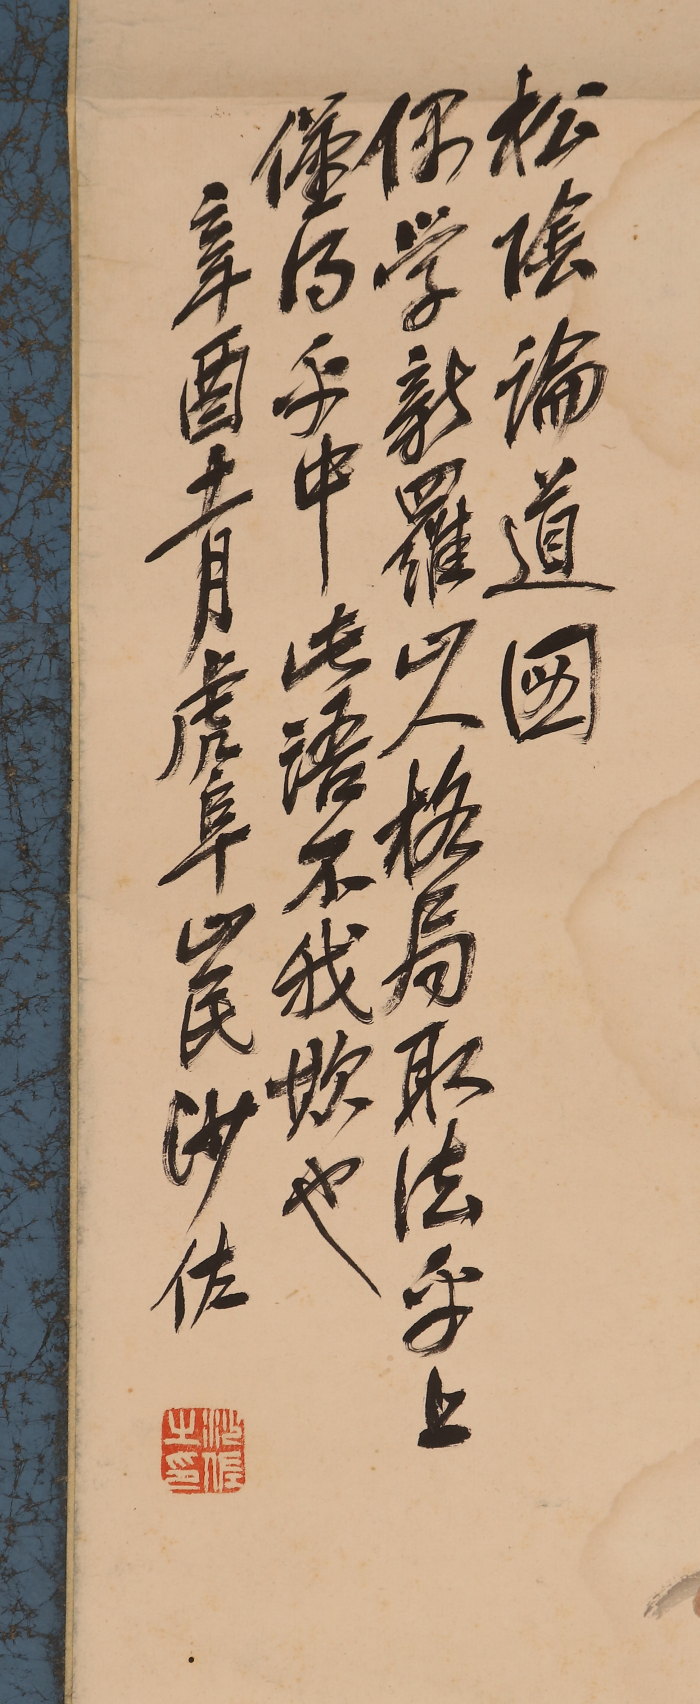 松陰論道図
偶学新羅山人格局取法乎上
僅得乎中此語不我欺也
辛酉十一月虎阜山民沙佐
沙佐之印